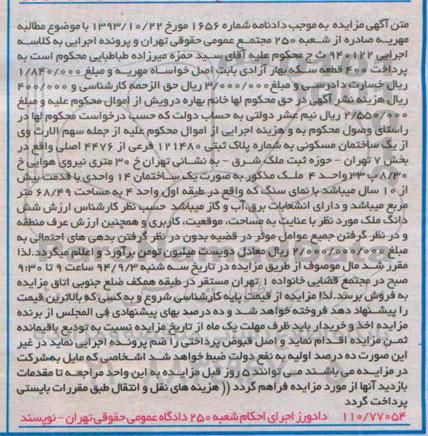 متن آگهی مزایده به موجب دادنامه شماره ۱۶۵۶ مورخ ۱۳۹۳/۱۰/۲۲ با موضوع مطالبه
مهریه صادره از شعبه ۲۵۰ مجتمع عمومی حقوقی تهران و پرونده اجرایی به کلاسه
اجرایی ۹۴۰۱۲۲ ث ح محکوم علیه آقای سید حمزه میرزاده طباطبایی محکوم است به
پرداخت ۴۰۰ قطعه سکه بهار آزادی بابت اصل خواسته مهریه و مبلغ ۱/۸۴۰/۰۰۰
ریال خسارت دادرسی و مبلغ ۳/۰۰۰/۰۰۰ ریال حق الزحمه کارشناسی و ۴۰۰/۰۰۰
ریال هزینه نشر آگهی در حق محکوم لها خانم بهاره درویش از اموال محکوم علیه و مبلغ
۲/۵۵۰/۰۰۰ ریال نیم عشر دولتی به حساب دولت که حسب درخواست محکوم لها در
راستای وصول محکوم به و هزینه اجرایی از اموال محکوم علیه از جمله سهم الارث وی
از یک ساختمان مسکونی به شماره پلاک ثبتی ۱۲۱۴۸۰ فرعی از ۴۴۷۶ اصلی واقع در
بخش ۷ تهران - حوزه ثبت ملک شرق - به نشانی تهران خ ۳۰ متری نیروی هوایی خ
۸/۳۰ پ ۳۳ واحد ۴ ملک مذکور به صورت یک ساختمان ۱۴ واحدی با قدمت بیش
از ۱۰ سال میباشد با نمای سنگ که واقع در طبقه اول واحد ۴ به مساحت ۶۸/۴۹ متر
مربع میباشد و دارای انشعابات برق، آب و گاز میباشد حسب نظر کارشناس ارزش شش
دانگ ملک مورد نظر با عنایت به مساحت، موقعیت، کاربری و همچنین ارزش عرف منطقه
و در نظر گرفتن جمیع عوامل موثر در قضیه بدون در نظر گرفتن بدهی های احتمالی به
مبلغ ۲/۰۰۰/۰۰۰/۰۰۰ ریال معادل دویست میلیون تومن برآورد و اعلام میگردد. لذا
مقرر شد مال موصوف از طریق مزایده در تاریخ سه شنبه ۹۴/۹/۳ ساعت ۹ تا ۹:۳۰
صبح در مجتمع قضایی خانواده ۱ تهران مستقر در طبقه همکف ضلع جنوبی اتاق مزایده
به فروش برسد. لذا مزایده از قیمت پایه کارشناسی شروع و به کسی که بالاترین قیمت
را پیشنهاد دهد فروخته خواهد شد و ده درصد بهای پیشنهادی فی المجلس از برنده
مزایده اخذ و خریدار باید ظرف مهلت یک ماه از تاریخ مزایده نسبت به تودیع باقیمانده
ثمن مزایده اقدام نماید و اصل قبوض پرداختی را ضم پرونده اجرایی نماید در غیر
این صورت ده درصد اولیه به نفع دولت ضبط خواهد شد اشخاصی که مایل به شرکت
در مزایده می باشند می توانند ۵ روز قبل مزایده به این واحد مراجعه تا مقدمات
بازدید آنها از مورد مزایده فراهم گردد (( هزینه های نقل و انتقال طبق مقررات بایستی
پرداخت گردد
۱۱۰/۷۷۰۵۴ دادورز اجرای احکام شعبه ۲۵۰ دادگاه عمومی حقوقی تهران - نویسند